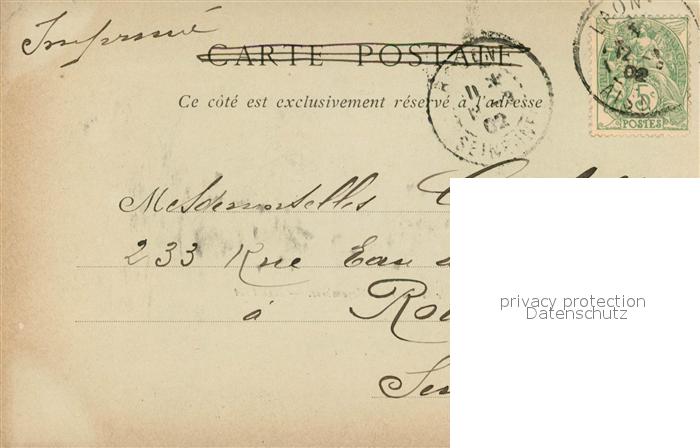 Imprimé
CARTE POSTALE
Ce côté est exclusivement réservé à l'adresse
LAON
02
AISNE
5c
POSTES
11
02
SEINE
Mesdemoiselles
233 Rue Eau
à
privacy protection
Datenschutz